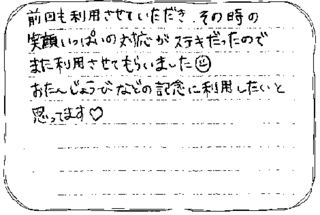 前回も利用させていただき、その時の
笑顔いっぱいの対応がステキだったので
また利用させてもらいました☺
おたんじょうびなどの記念に利用したいと
思ってます♡